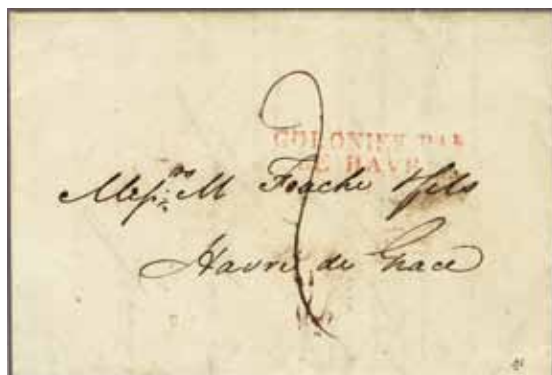 COLONIES PAR
LE HAVRE
Mess.rs M Foache & fils
Havre de Grace